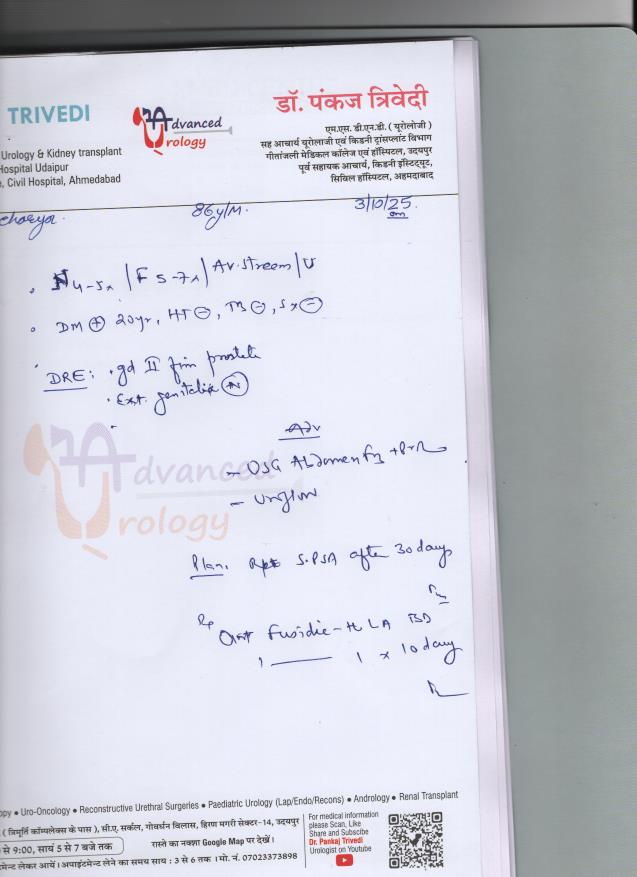 TRIVEDI
Advanced
Urology
डॉ. पंकज त्रिवेदी
एम.एस. डी.एन.बी. ( यूरोलोजी )
सह आचार्य यूरोलोजी एवं किडनी ट्रांसप्लांट विभाग
गीतांजली मेडिकल कॉलेज एवं हॉस्पिटल, उदयपुर
पूर्व सहायक आचार्य, किडनी इंस्टिट्यूट,
सिविल हॉस्पिटल, अहमदाबाद
Urology & Kidney transplant
Hospital Udaipur
, Civil Hospital, Ahmedabad
86y/M. 3/10/25
N 4-5x | F 5-7x | Av. stream | U
DM + 20yr, HT -, TB -, Sx -
DRE : gd II firm prostate
Ext. genitalia N
Adv
- USG Abdomen + PVR
- Uroflow
Advanced
Urology
Plan. Rpt S.PSA after 30 days
Rp Oint Fusidic-H LA BD
1 1 x 10 day
opy • Uro-Oncology • Reconstructive Urethral Surgeries • Paediatric Urology (Lap/Endo/Recons) • Andrology • Renal Transplant
( त्रिमूर्ति कॉम्पलेक्स के पास ), सी.ए. सर्कल, गोवर्धन विलास, हिरण मगरी सेक्टर-14, उदयपुर
से 9:00, सायं 5 से 7 बजे तक रास्ते का नक्शा Google Map पर देखें।
लेकर आयें। अपाइंटमेन्ट लेने का समय सायः 3 से 6 तक । मो. नं. 07023373898
For medical information
please Scan, Like
Share and Subscibe
Dr. Pankaj Trivedi
Urologist on Youtube